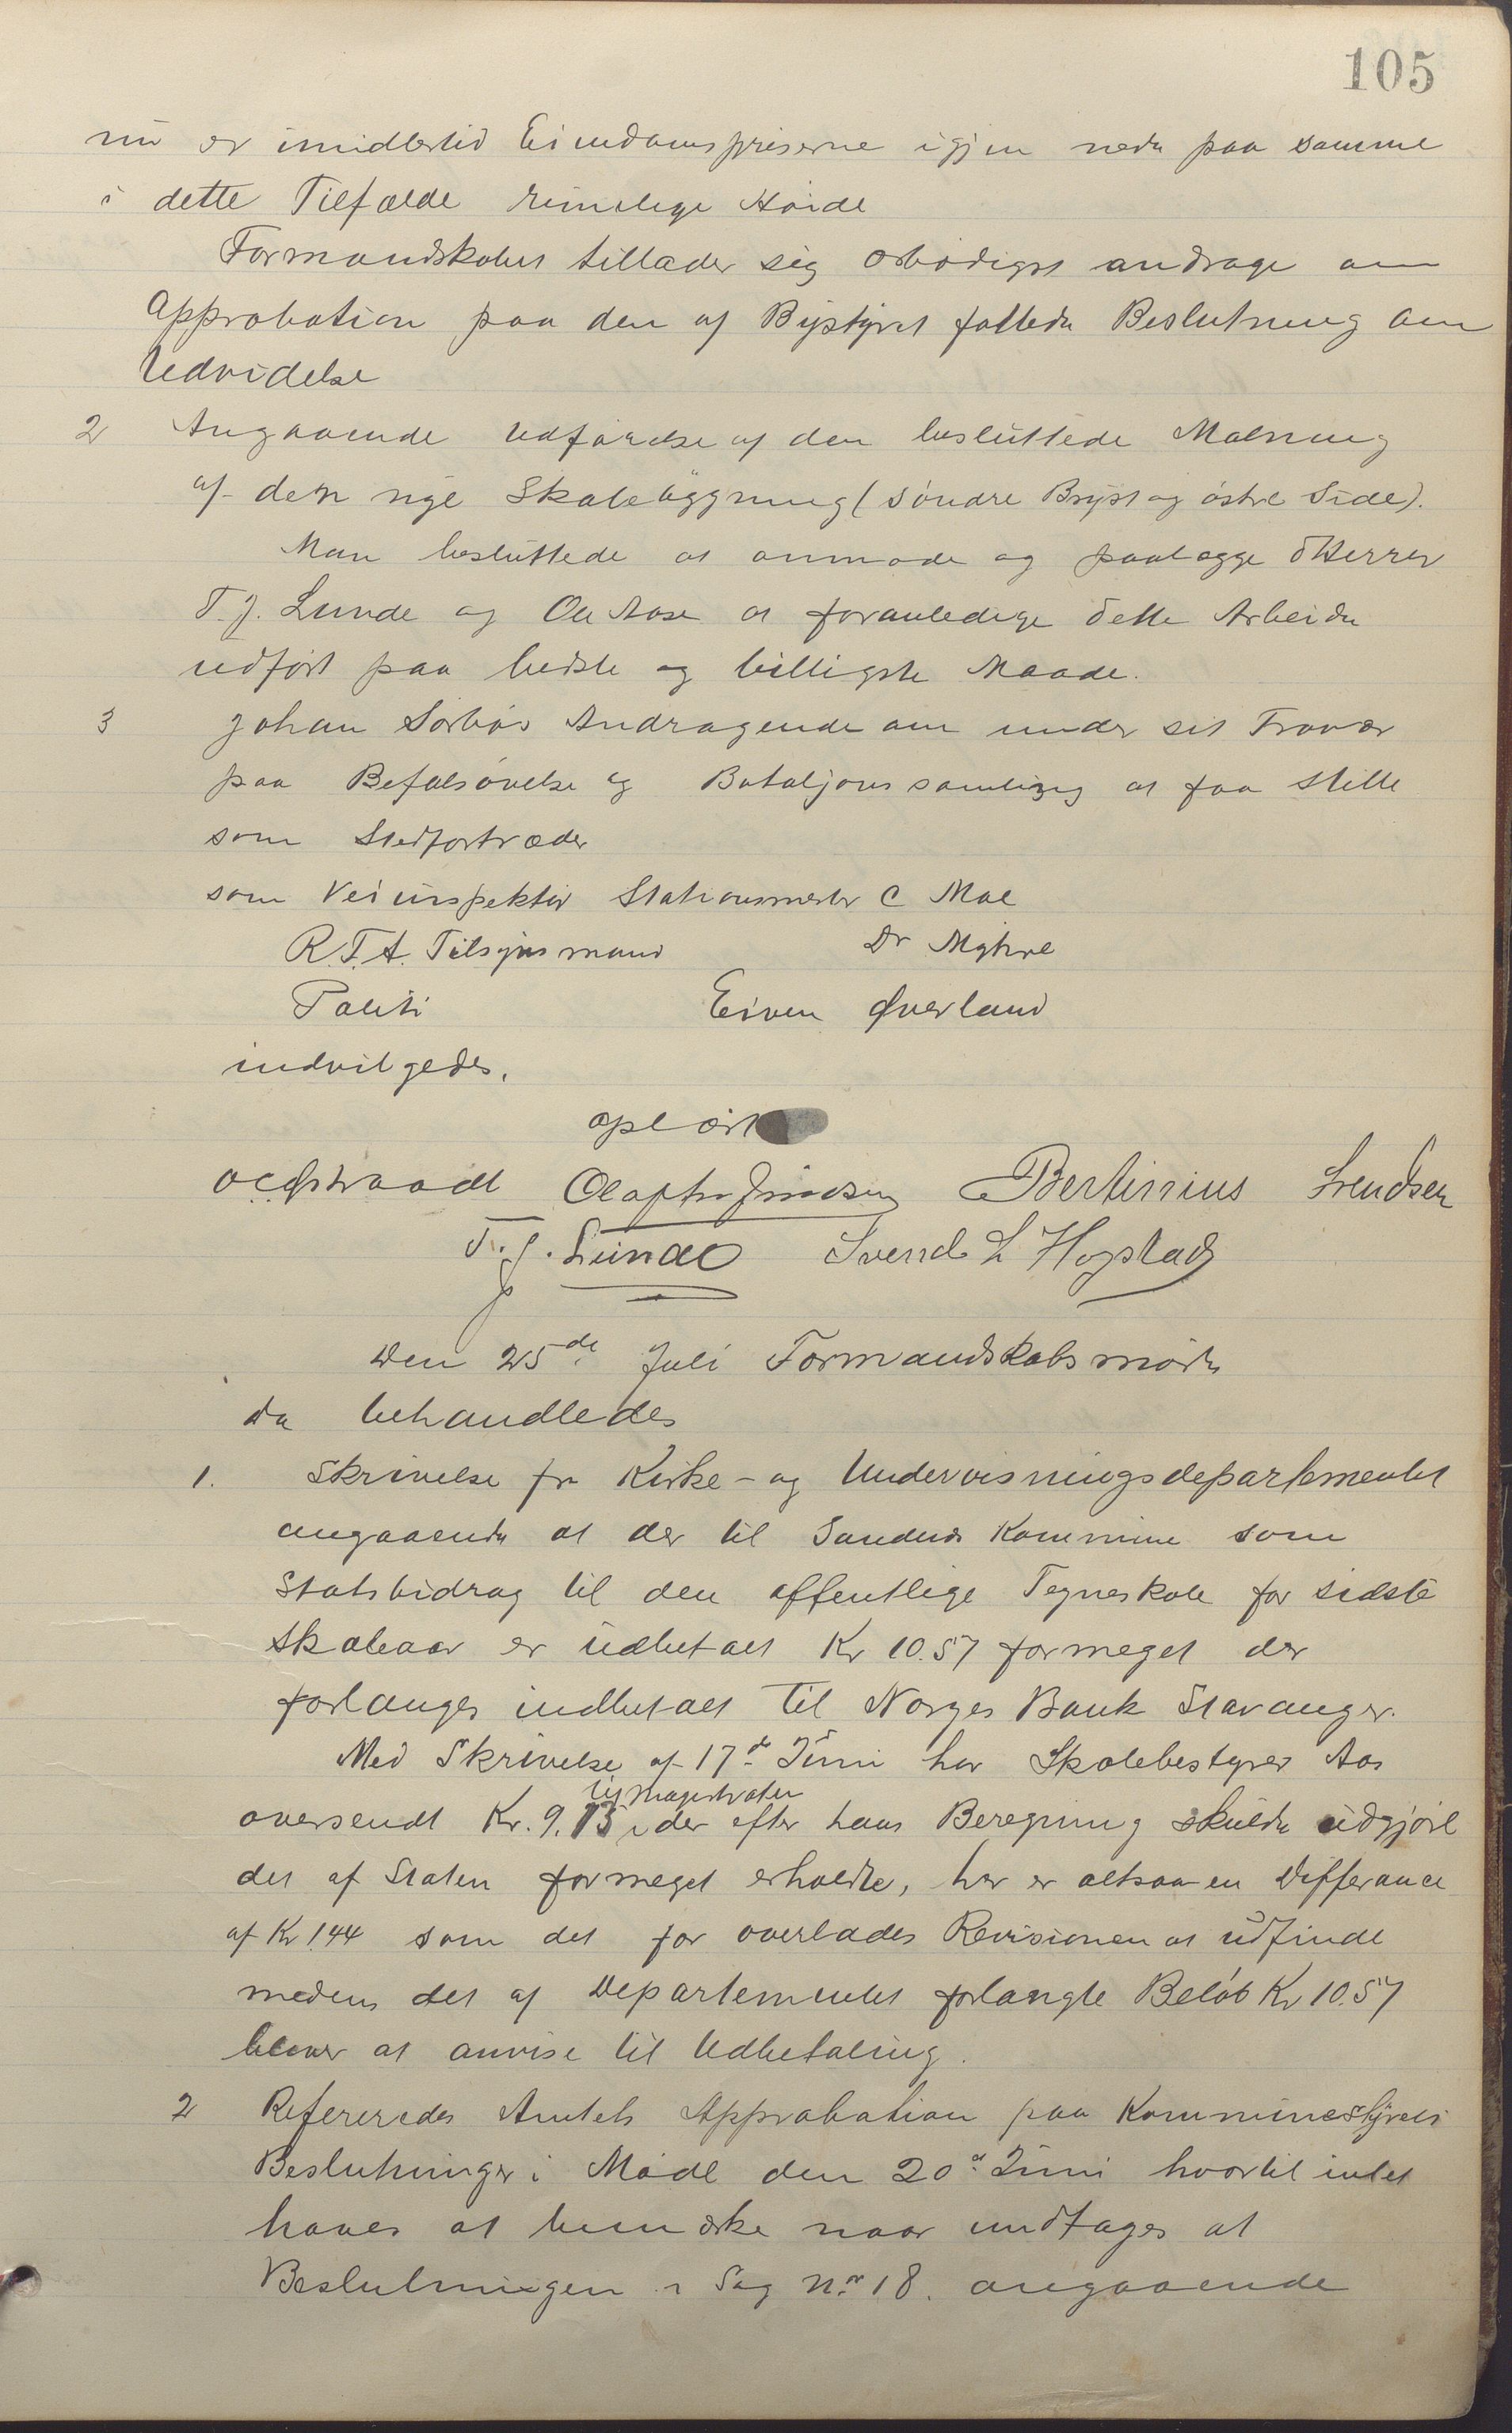 105
nu er imidlertid Eiendomspriserne igjen nede paa samme
i dette Tilfælde rimelige Høide
Formandskabet tillader sig ærbødigst andrage om
Approbation paa den af Bystyret fattede Beslutning om
Udvidelse
2 Angaaende Udførelse af den besluttede Malning
af den nye Skolebygning (søndre Bryst og østre Side).
Man besluttede at anmode og paalægge DHerrer
T. J. Lunde og Ole Aase at foranledige dette Arbeide
udført paa bedste og billigste Maade.
3 Johan Sørbøs Andragende om under sit Fravær
paa Befalsøvelse og Bataljonssamling at faa stille
som Stedfortræder
som Veiinspektør Stationsmester C Moe
R.T.A. Tilsynsmand Dr Myhre
Politi Eiven Øverland
indvilgedes.
oplæst
Bertinius Svendsen
T. J. Lunde Svend L Hogstad
Den 25de Juli Formandskabsmøde
da behandledes
1. Skrivelse fra Kirke- og Undervisningsdepartementet
angaaende at der til Sandnes Kommune som
Statsbidrag til den offentlige Tegneskole for sidste
Skoleaar er udbetalt Kr 10.57 formeget der
forlanges indbetalt til Norges Bank Stavanger.
Med Skrivelse af 17de Juni har Skolebestyrer Aas
til Magistraten
oversendt Kr. 9.13 der efter hans Beregning skulde udgjøre
det af Staten formeget erholdte, her er altsaa en Differance
af Kr 1.44 som det for overlades Revisionen at udfinde
medens det af Departementet forlangte Beløb Kr 10.57
bliver at anvise til Udbetaling.
2 Refereredes Amtets Approbation paa Kommunestyrets
Beslutninger i Møde den 20de Juni hvortil intet
haves at bemærke naar undtages at
Beslutningen i Sag No 18. angaaende